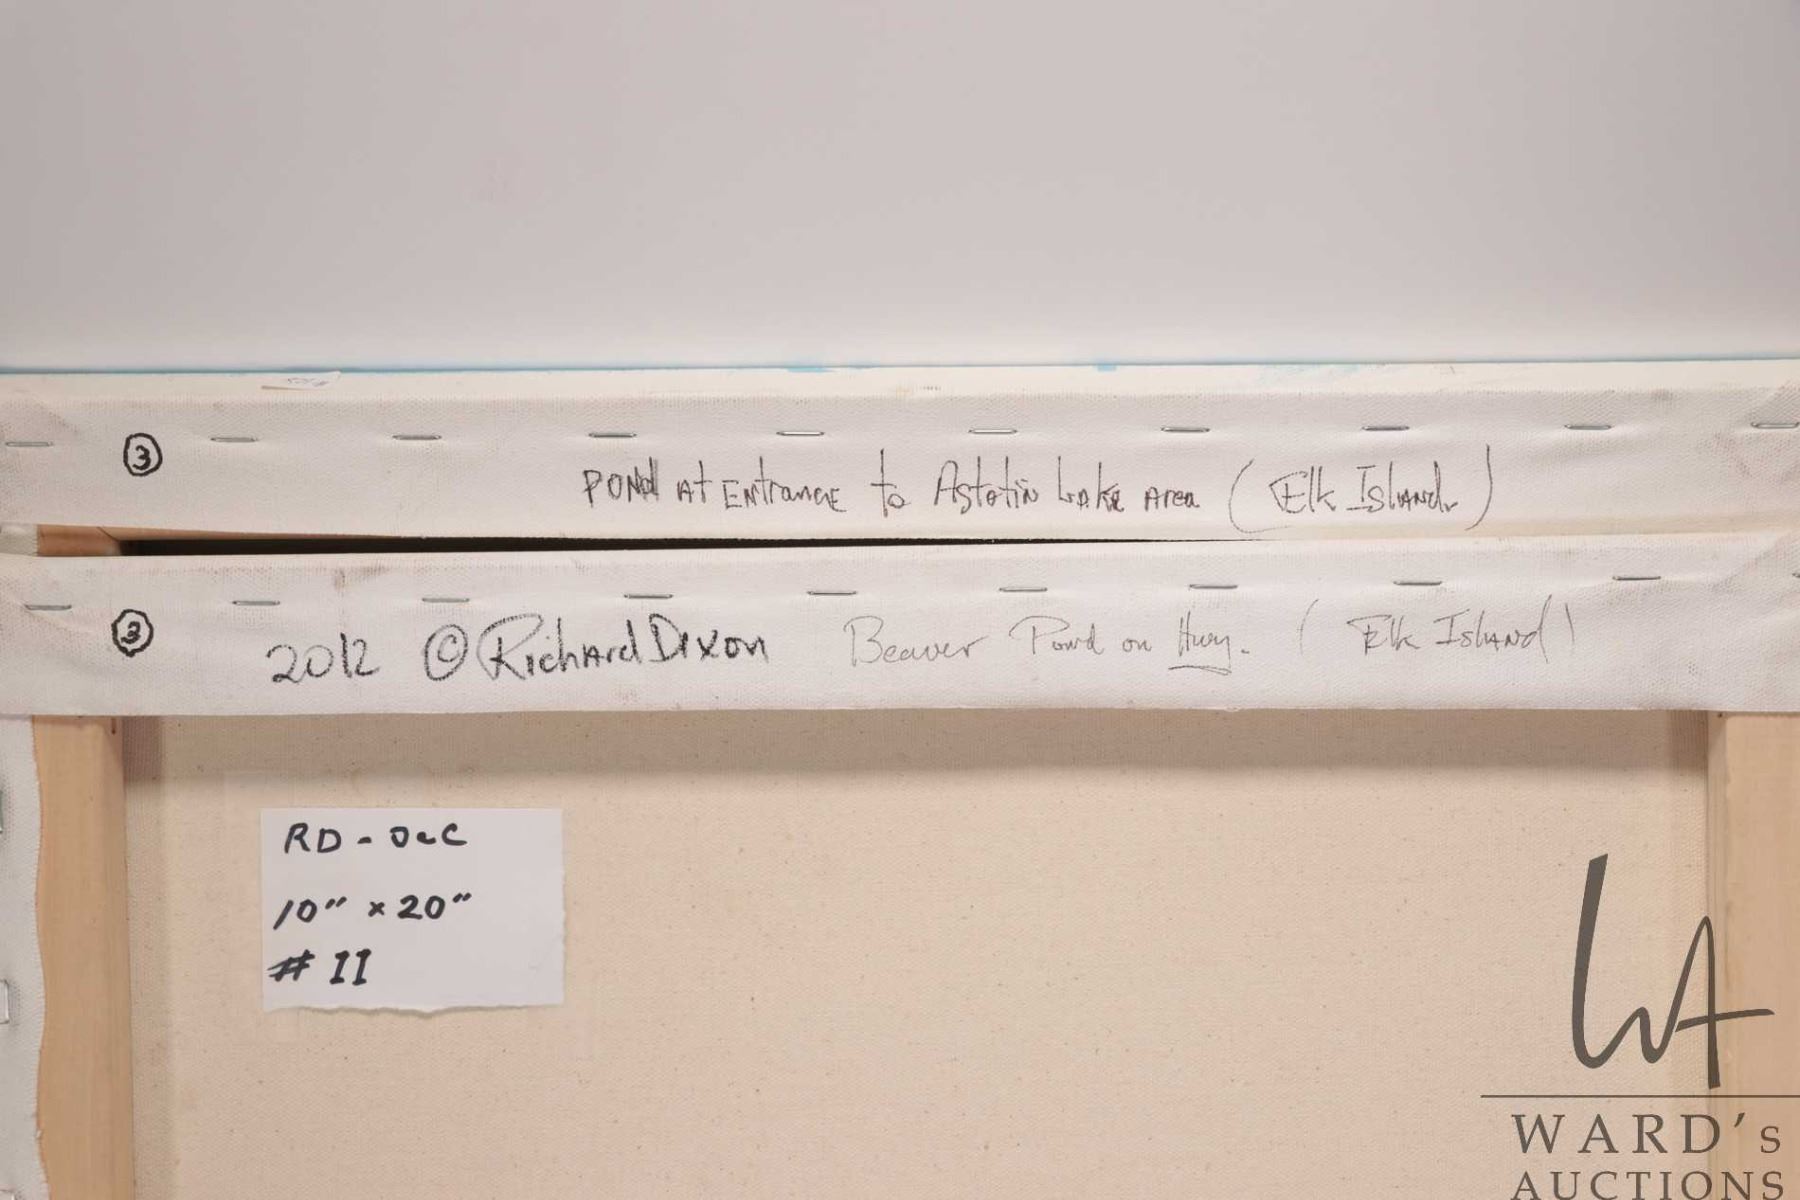 ③ POND At Entrance to Astotin Lake Area (Elk Island)
③ 2012 © Richard Dixon Beaver Pond on Hwy. (Elk Island)
RD - O~C
10" x 20"
# 11
WA
WARD's
AUCTIONS